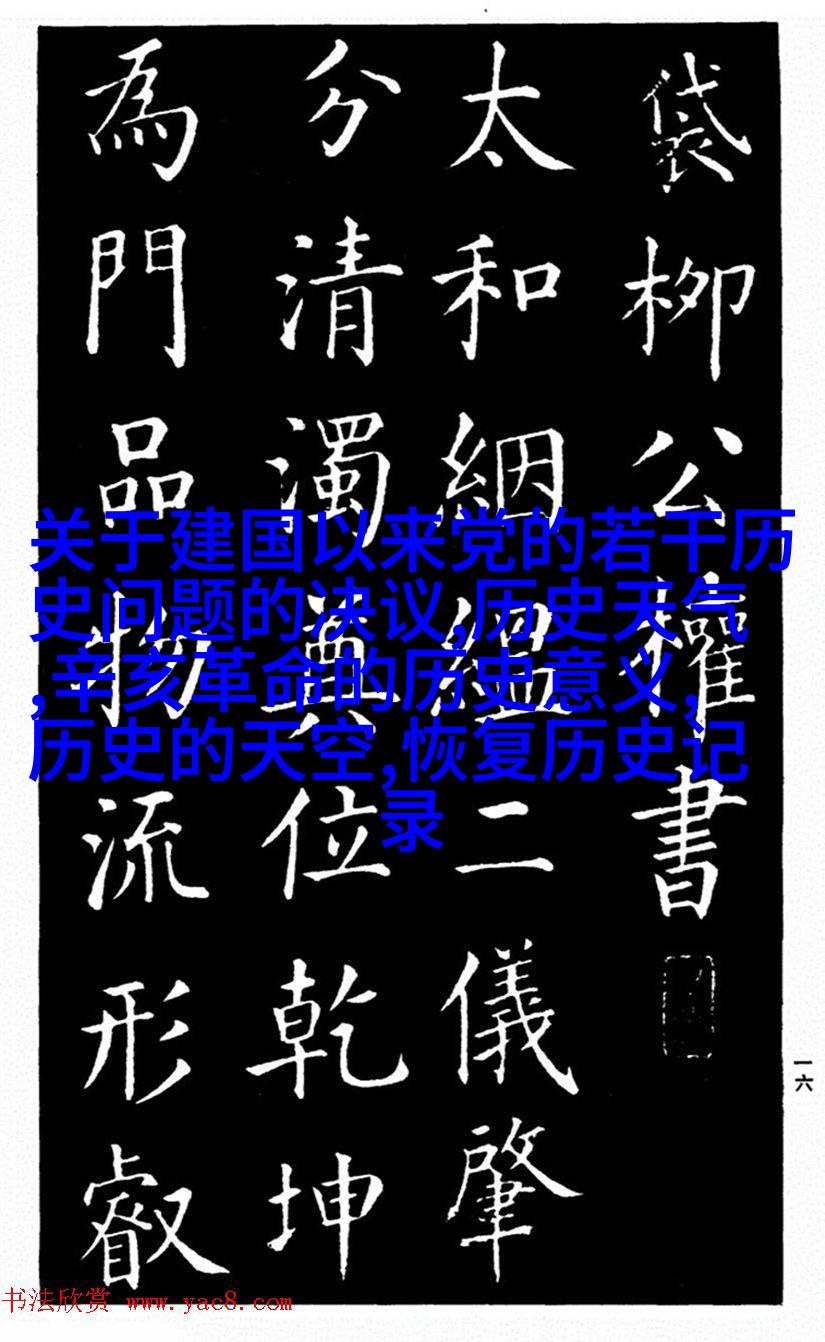 袋柳公權書
太和絪縕二儀肇
分清濁奠位乾坤
為門品物流形叡
关于建国以来党的若干历
史问题的决议,历史天气
,辛亥革命的历史意义,
历史的天空,恢复历史记
录
一六
书法欣赏 www.yac8.com